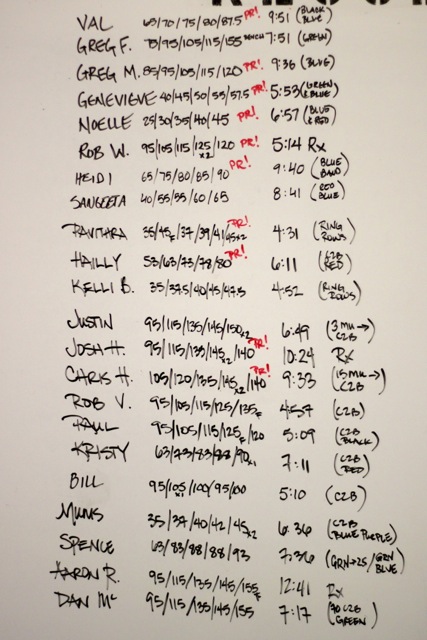 VAL 65/70/75/80/87.5 PR! 9:51 (BLACK BLUE)
GREG F. 75/95/105/115/155 BENCH 7:51 (GREEN)
GREG M. 85/95/105/115/120 PR! 9:36 (BLUE)
GENEVIEVE 40/45/50/55/57.5 PR! 5:53 (GREEN & BLUE)
NOELLE 25/30/35/40/45 PR! 6:57 (BLUE & RED)
ROB W. 95/105/115/125x2/120 PR! 5:14 Rx
HEIDI 65/75/80/85/90 PR! 9:40 (BLUE BAND)
SANGEETA 40/55/55/60/65 8:41 (RED BLUE)
PAVITHRA 35/45F/37/39/41/45x2 PR! 4:31 (RING ROWS)
HAILLY 53/63/73/78/80 PR! 6:11 (C2B RED)
KELLI B. 35/37.5/40/45/47.5 4:52 (RING ROWS)
JUSTIN 95/115/135/145/150x2 6:49 (3 MU → C2B)
JOSH H. 95/115/135/145x2/140 PR! 10:24 Rx
CHRIS H. 105/120/135/145x2/140 PR! 9:33 (15 MU → C2B)
ROB V. 95/105/115/125/135F 4:57 (C2B)
PAUL 95/105/115/125F/120 5:09 (C2B BLACK)
KRISTY 63/73/83/88/90x1 7:11 (C2B RED)
BILL 95/105x1/100/95/100 5:10 (C2B)
MIMS 35/37/40/42/45x2 6:36 (C2B BLUE PURPLE)
SPENCE 63/83/88/88/93 7:36 (GRN→25/GRN BLUE)
AARON R. 95/115/135/145/155F 12:41 Rx
DAN Mc 95/115/135/145/155 7:17 (90 C2B GREEN)